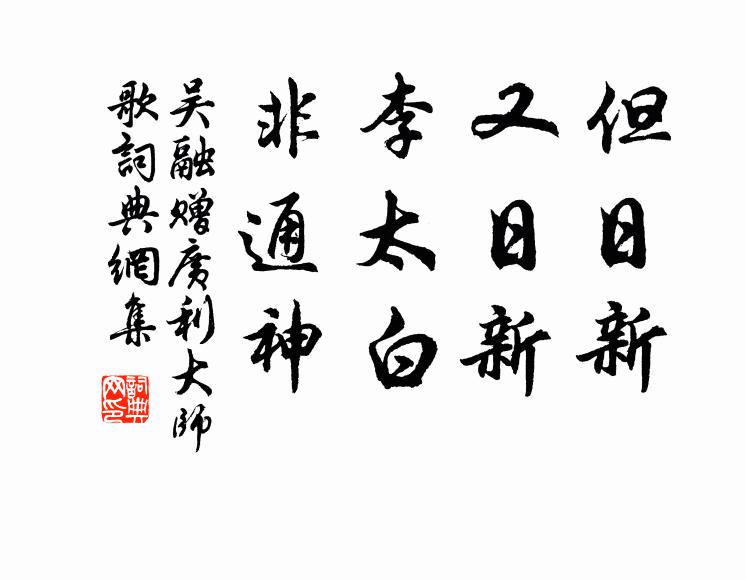 但日新
又日新
李太白
非通神
吴融贈廣利大師
歌詞典網集
詞典
网印